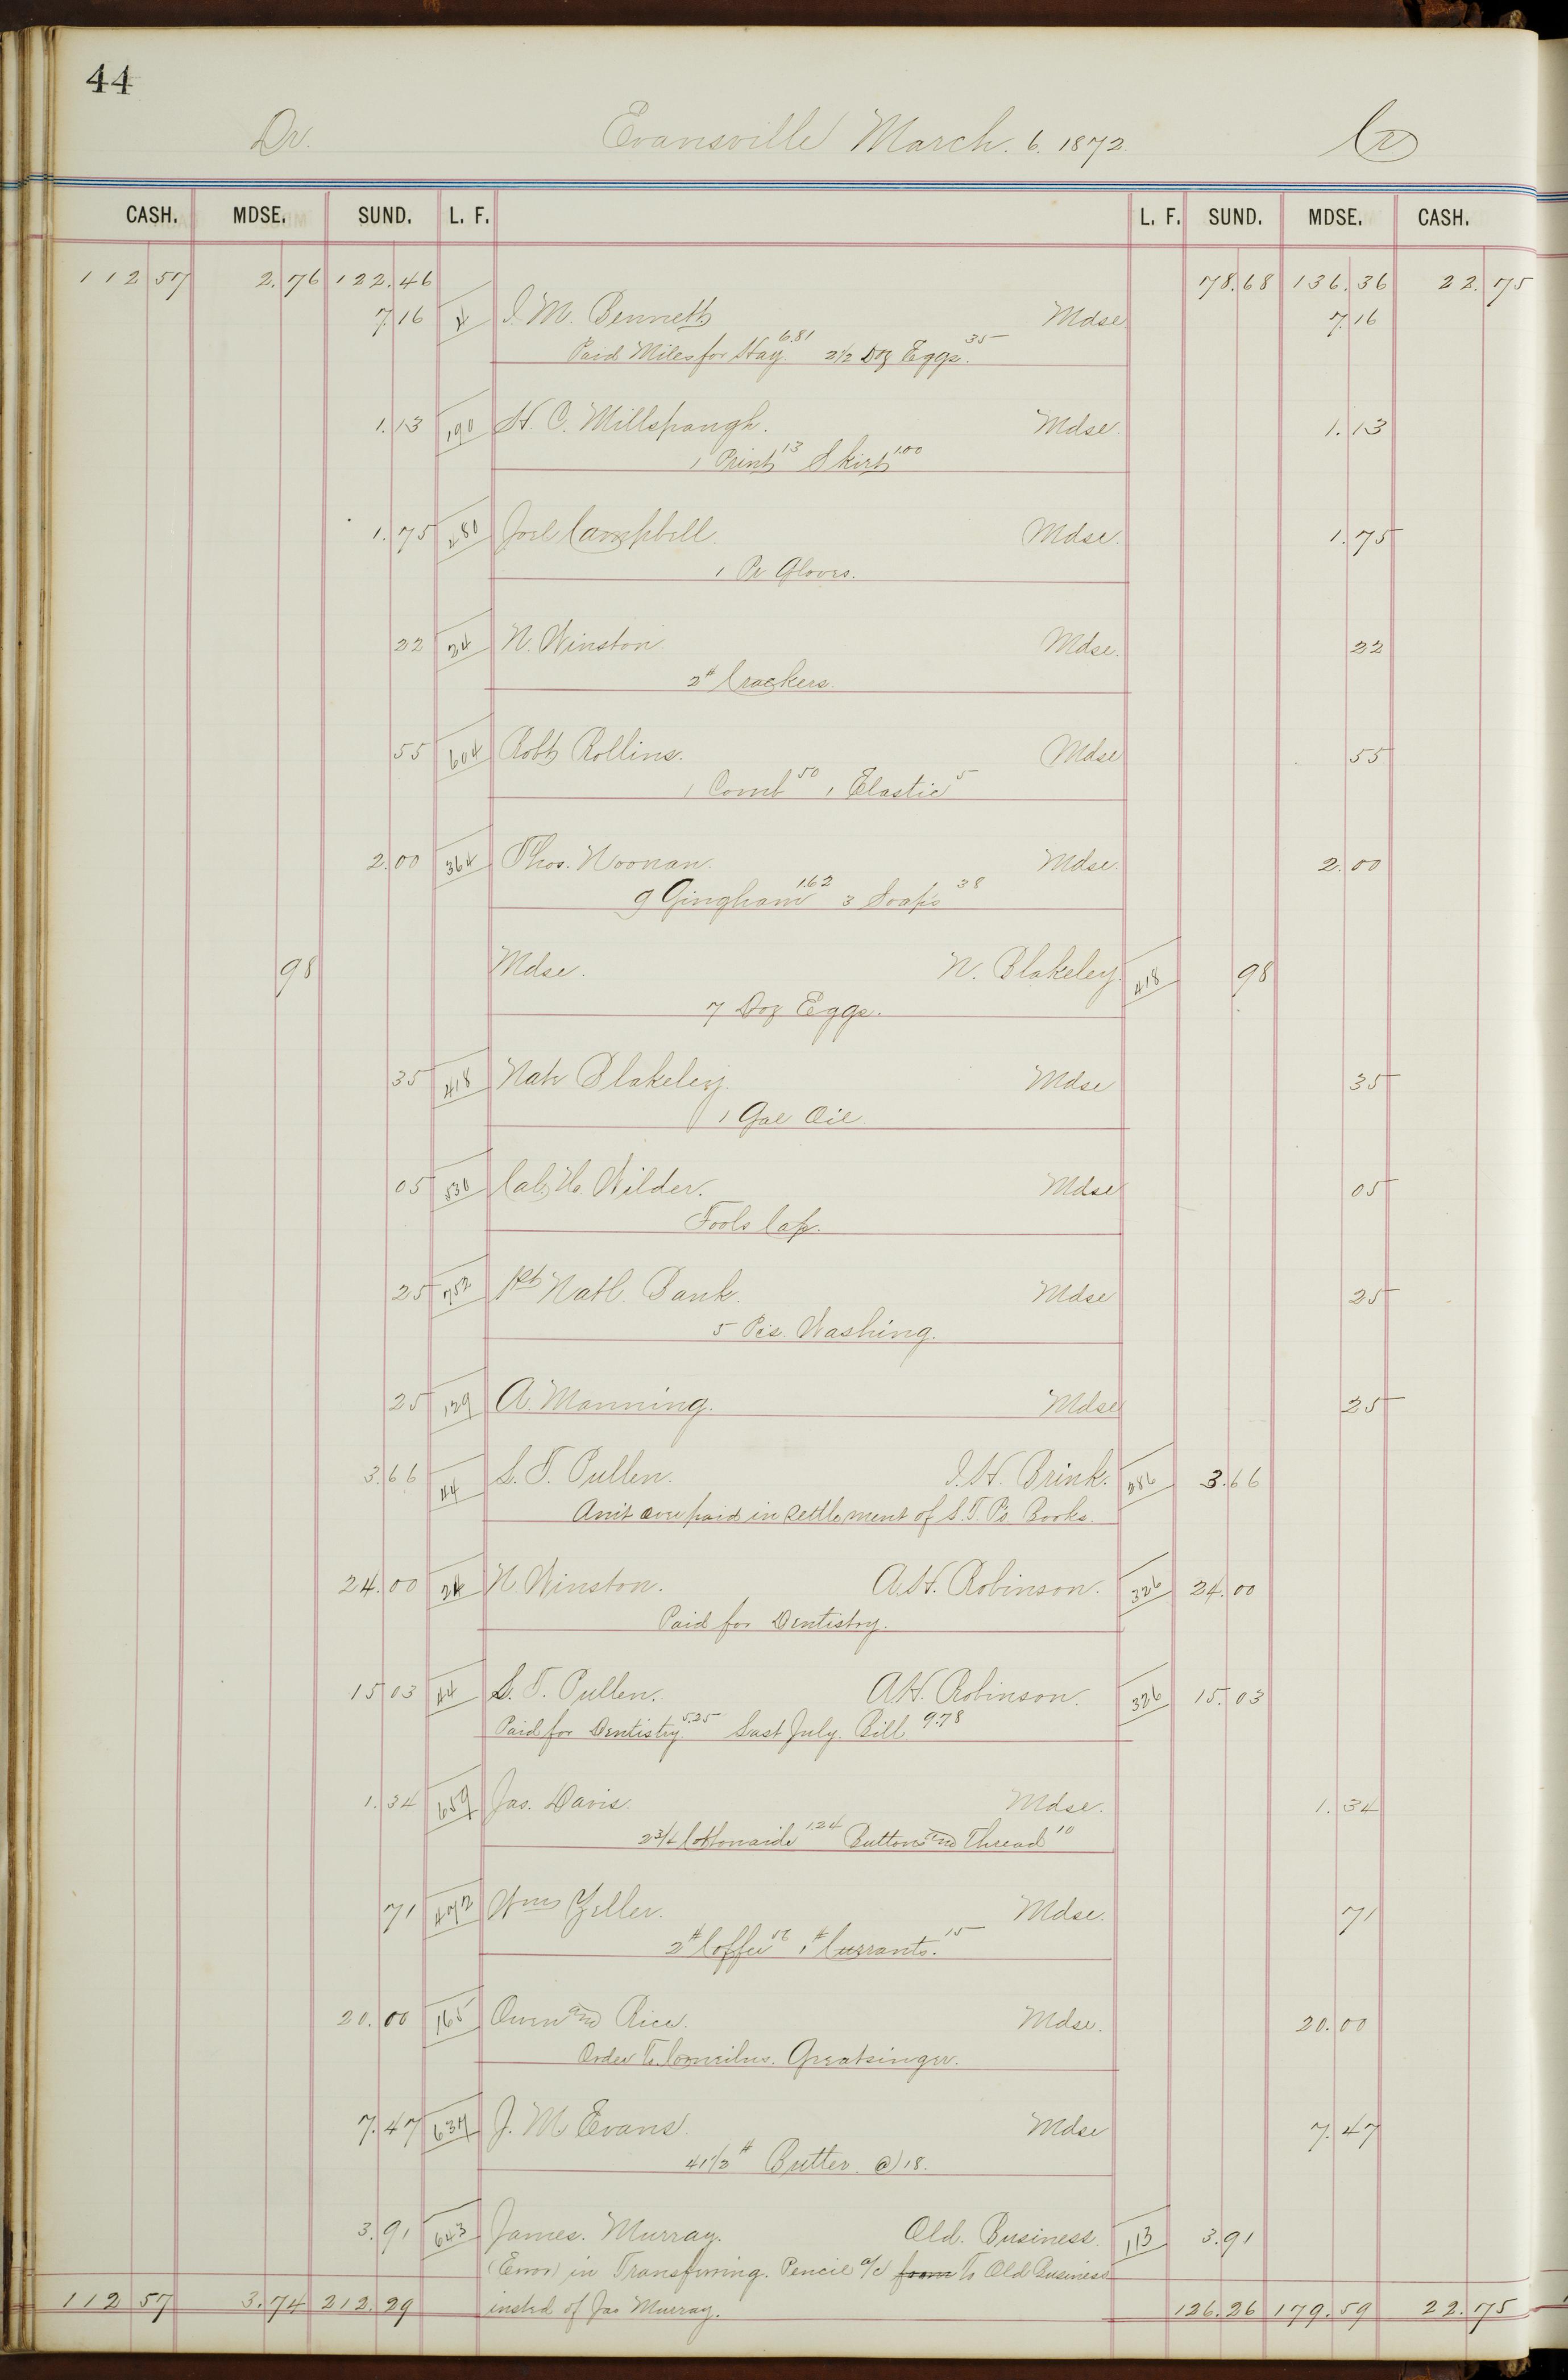 44
Dr. Evansville March. 6. 1872. Cr
CASH. MDSE. SUND. L. F. L. F. SUND. MDSE. CASH.
112 57 2.76 122.46 78.68 136.36 22.75
7.16 4 I. M. Bennett Mdse. 7.16
Paid Miles for Hay. 6.81 2 1/2 Doz Eggs. 35
1.13 190 H. C. Millspaugh. Mdse. 1.13
1 Print 13 Skirt 1.00
1.75 280 Joel Campbell. Mdse. 1.75
1 Pr Gloves.
22 24 N. Winston Mdse. 22
2# Crackers.
55 604 Robt Rollins. Mdse 55
1 Comb 50 1 Elastic 5
2.00 364 Thos. Noonan. Mdse. 2.00
9 Gingham 1.62 3 Soaps 38
98 Mdse. N. Blakeley. 418 98
7 Doz Eggs.
35 418 Nat Blakeley. Mdse 35
1 Gal Oil.
05 530 Cal. Wilder. Mdse 05
Fools Cap.
25 752 1st Natl. Bank. Mdse 25
5 Pcs. Washing.
25 129 A. Manning. Mdse 25
3.66 44 S. T. Pullen. I. H. Brink. 286 3.66
Am't over paid in settlement of S. T. P's Books.
24.00 24 N Winston. A. H. Robinson. 326 24.00
Paid for Dentistry.
15 03 44 S. T. Pullen. A. H. Robinson. 326 15.03
Paid for Dentistry. 5.25 Last July. Bill 9.78
1.34 659 Jas. Davis. Mdse. 1.34
2 3/4 Cottonaide 1.24 Buttons and Thread 10
71 472 Wm Yeller. Mdse. 71
2# Coffee 56 1# Currants. 15
20.00 165 Owen and Rice. Mdse. 20.00
Order To. Cornelius. Greatsinger.
7.47 637 J. M. Evans Mdse 7.47
41 1/2# Butter. @ 18.
3.91 643 James. Murray. Old. Business. 113 3.91
(Error) in Transfering. Pencil a/c from To Old Business
insted of Jas Murray.
112 57 3.74 212.29 126.26 179.59 22.75